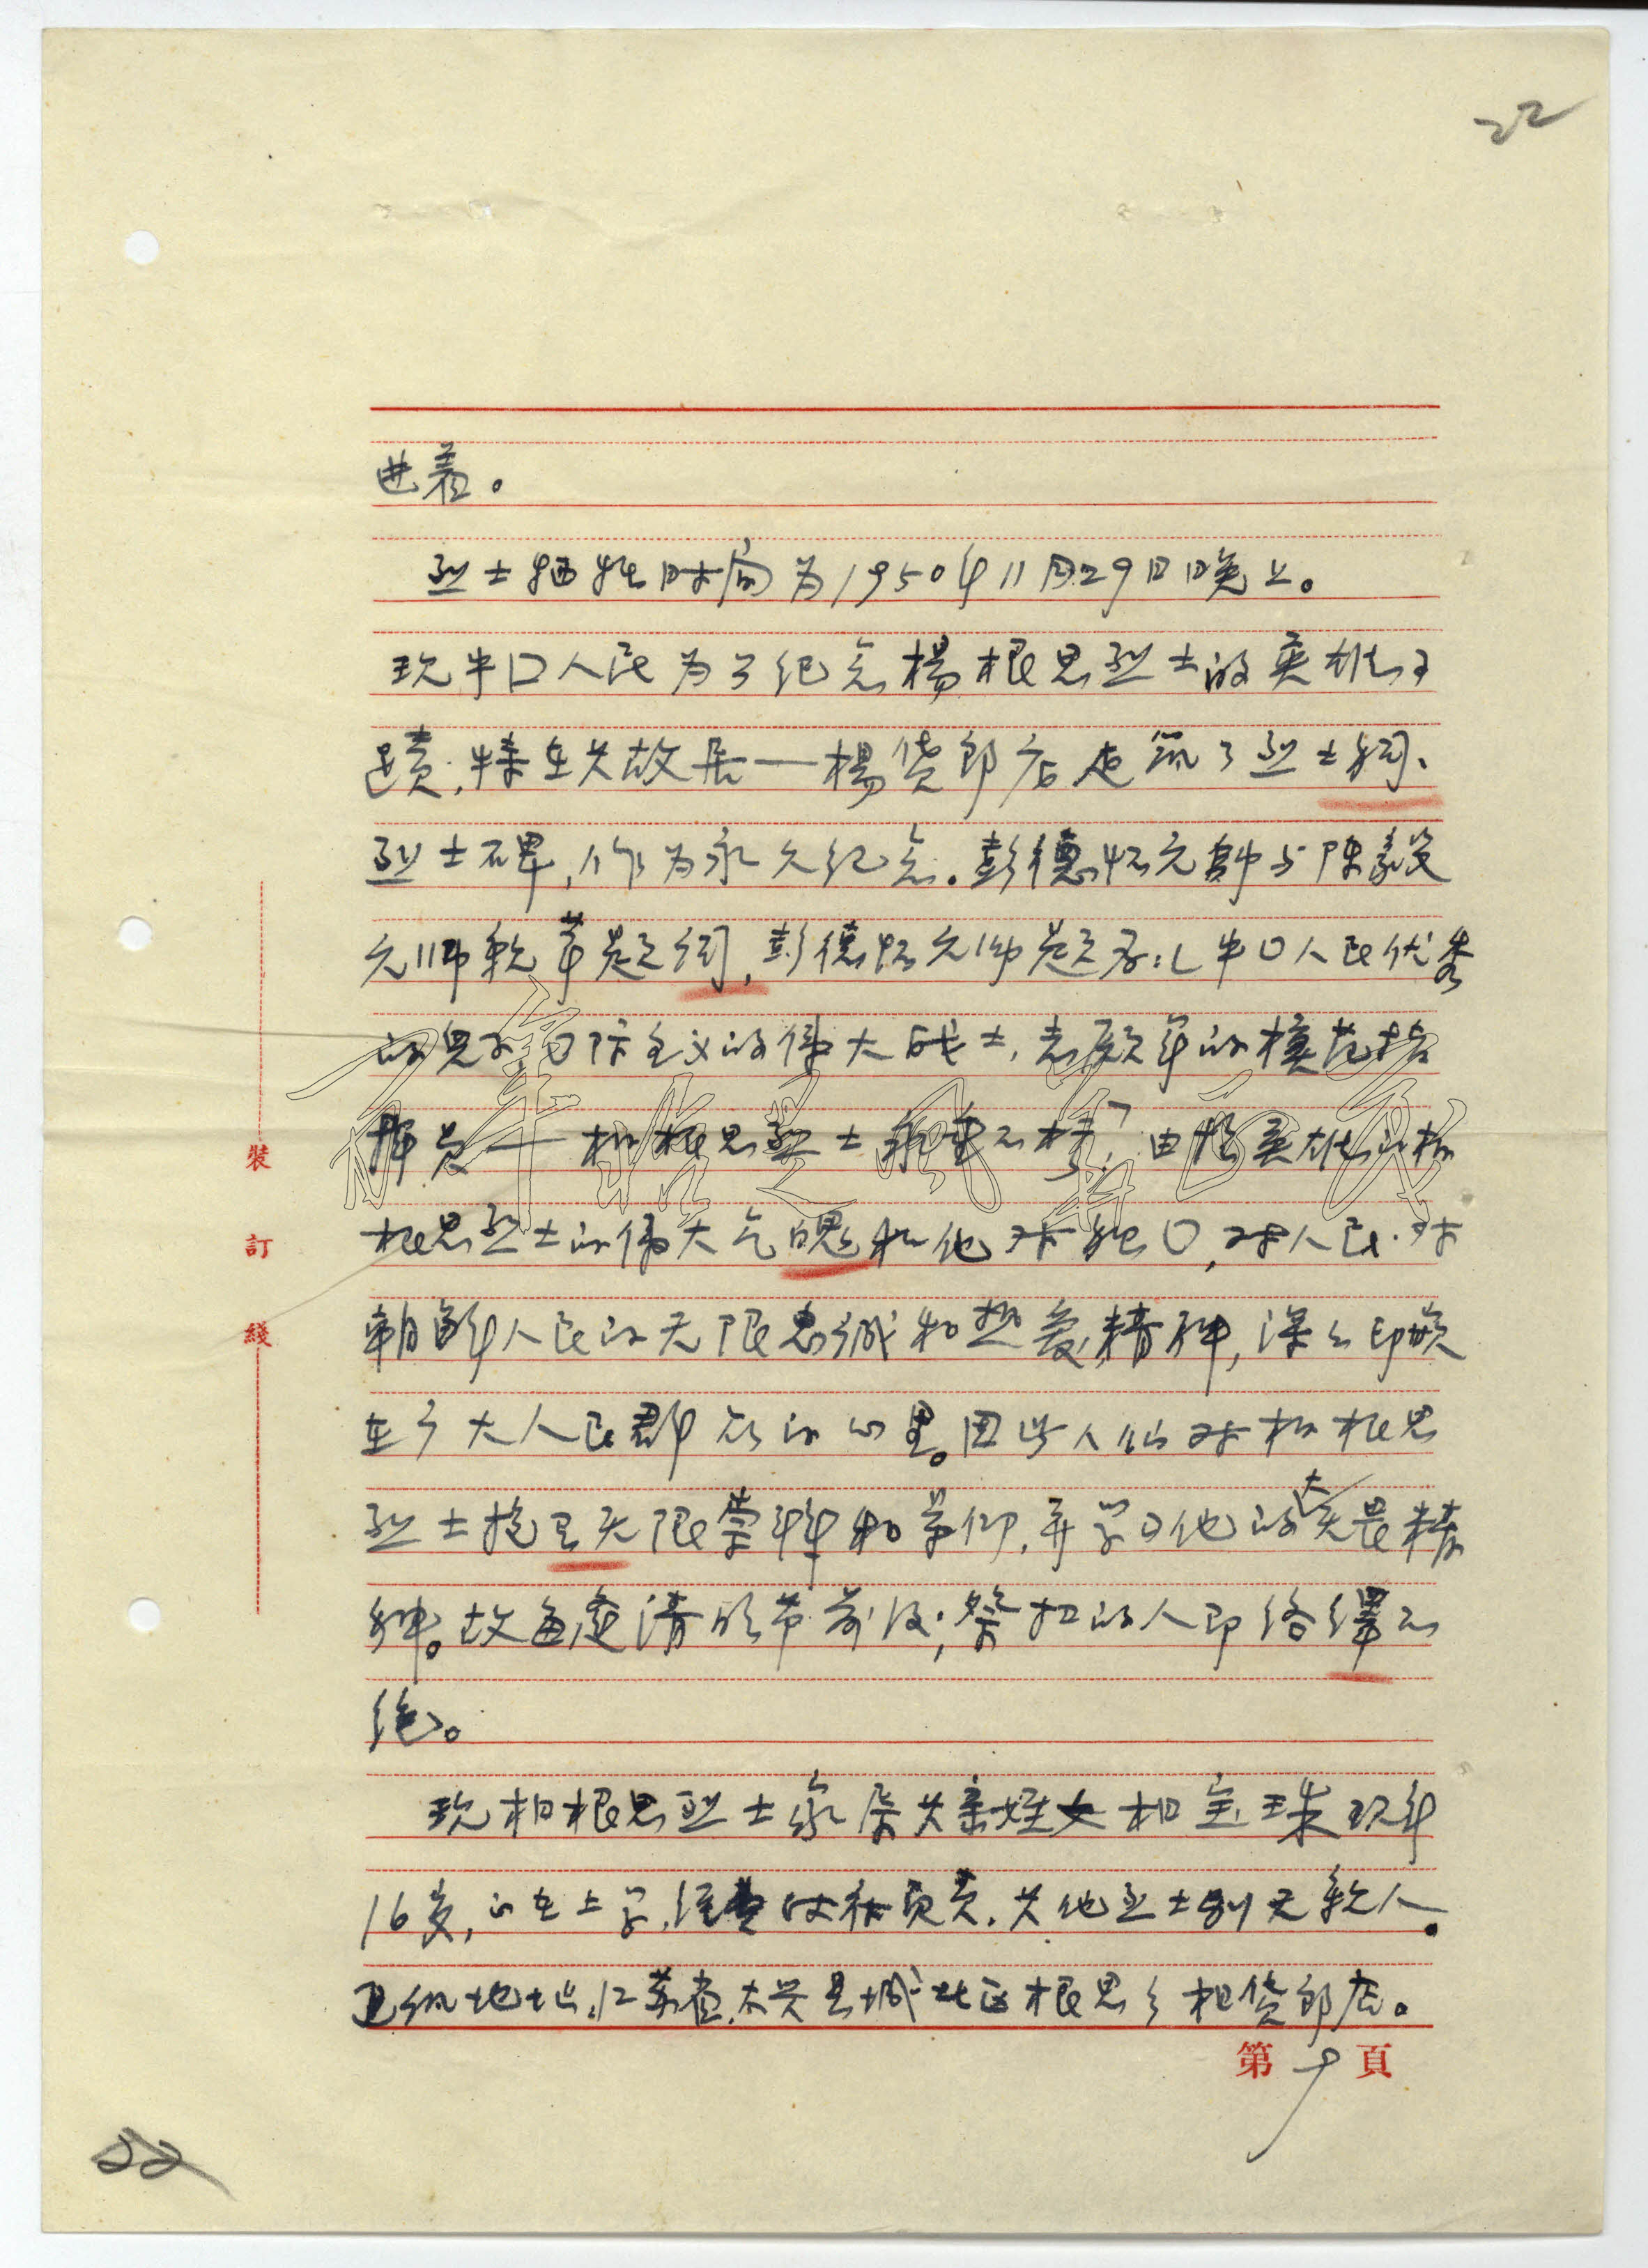 22
进着。
烈士牺牲时间为1950年11月29日晚上。
现中口人民为了纪念楊根思烈士的英雄事
蹟，特在其故居——楊货郎店造筑了烈士祠、
烈士碑，作为永久纪念。彭德怀元帥与陳毅
元帅親筆题词，彭德怀元帅题为：「中口人民优秀
的兒子，口际主义的偉大战士，志願軍的模范指
揮员——杨根思烈士永垂不朽」由於英雄的杨
根思烈士的偉大气魄和他对祖口，对人民，对
朝鮮人民的无限忠诚和热爱精神，深深印嵌
在广大人民群众的心里。因此人们对杨根思
烈士抱已无限崇拜和景仰，并学习他的大无畏精
神。故每逢清明节前後，祭扫的人即络繹不
绝。
现杨根思烈士家屬其亲姪女杨宝珠现年
16岁，尚在上学，经费政府負责，其他烈士别无親人。
地址，江苏省，太兴县城北区根思乡杨货郎店。
第9頁
裝
訂
綫
22